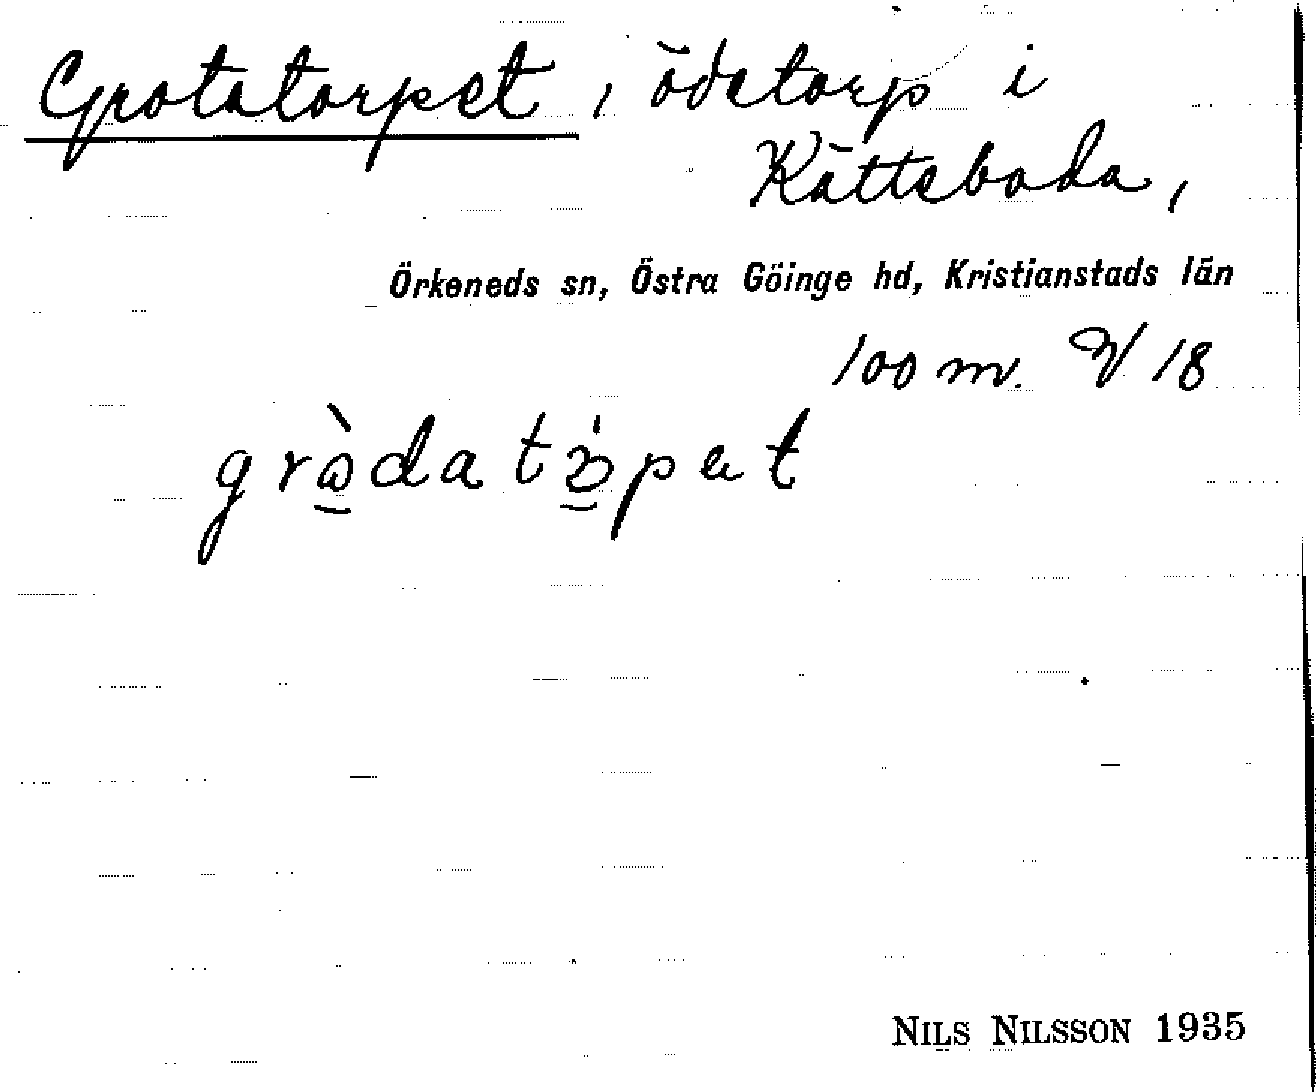 Grotatorpet, ödetorp i
Kätteboda,
Örkeneds sn, Östra Göinge hd, Kristianstads län
100 m. V 18
NILS NILSSON 1935